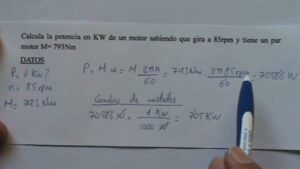 Calcula la potencia en KW de un motor sabiendo que gira a 85rpm y tiene un par
motor M= 793Nm
DATOS
P=¿ Kw?
n = 85rpm
M= 793Nm
P = M·ω = M 2πn/60 = 793Nm 2π 85rpm/60 = 70586 W
Cambio de unidades
70586 W · 1 KW/1000 W = 705 KW